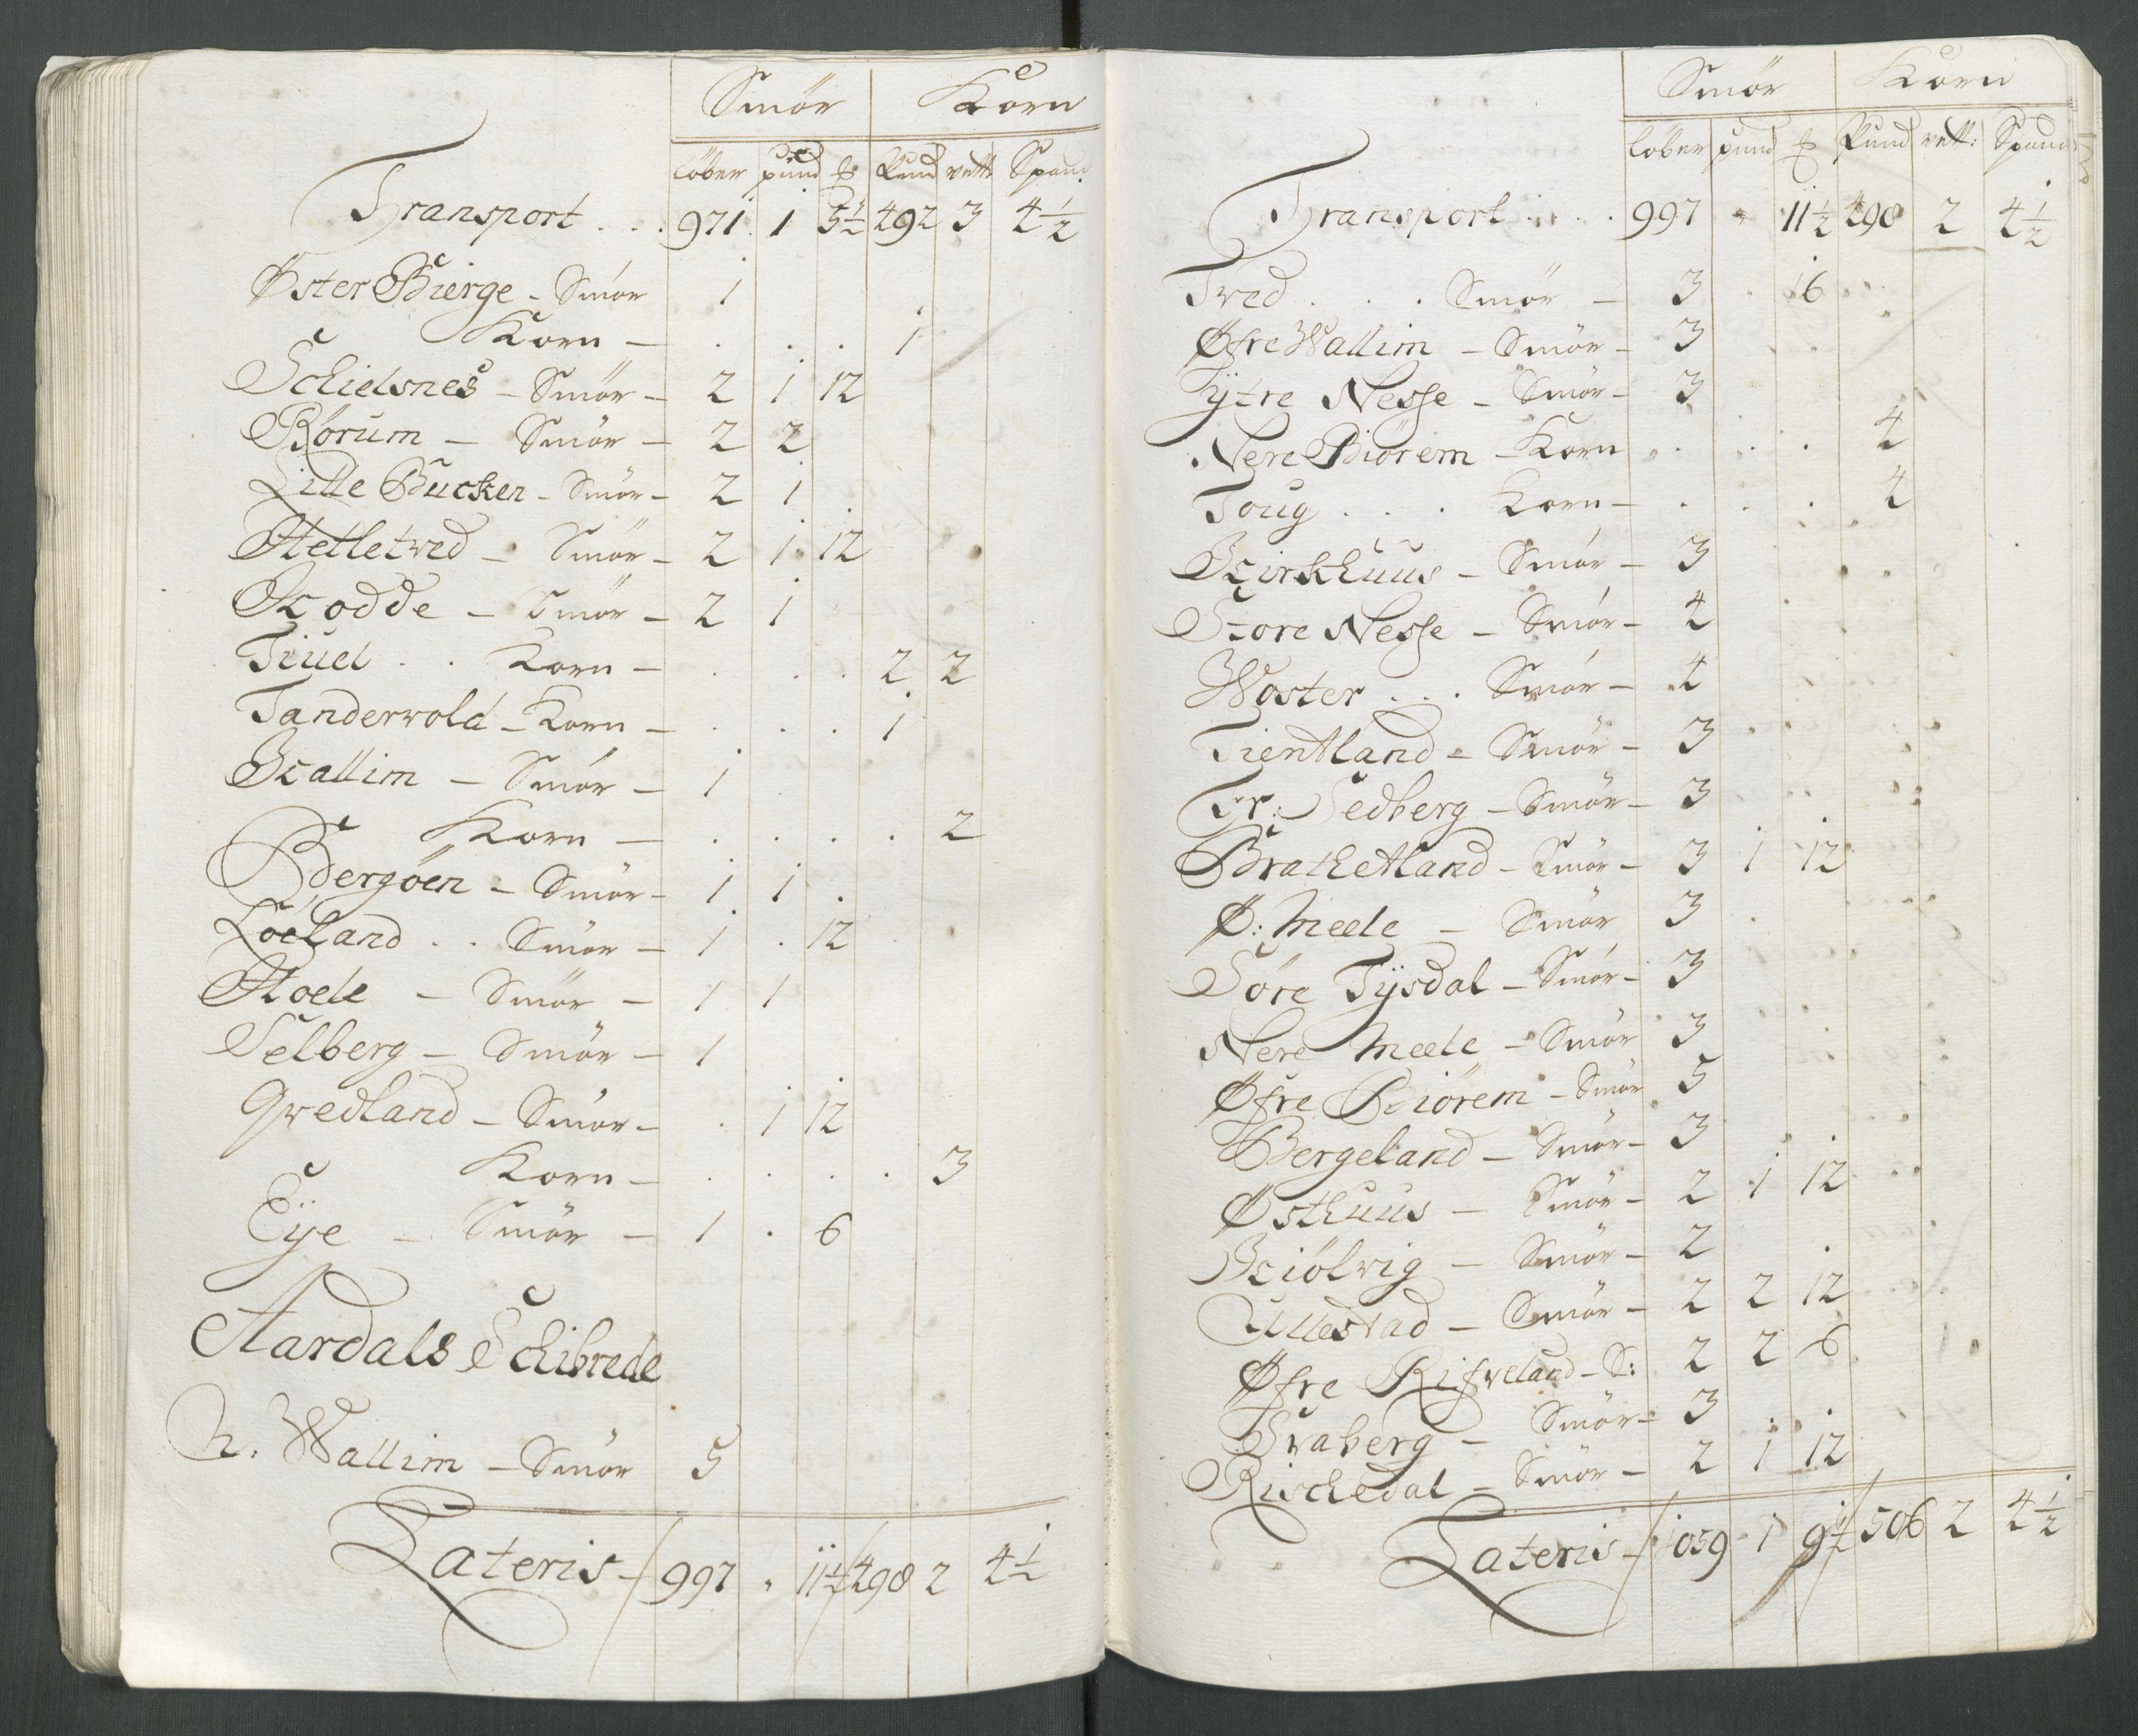 Smör Korn
löber pund ℔ Pund vett: Spand
Transport . . . 971 1 5½ 492 3 4½
Øster Bierge - Smör 1
Korn — . . . 1
Schielsnes - Smör - 2 1 12
Rörum — Smör — 2 2
Lille Bucken - Smör - 2 1
Hetletved - Smör - 2 1 12
Hodde - Smör - 2 1
Tiuel . . Korn — . . . 2 2
Tandervold - Korn - . . . 1
Hallim - Smör - 1
Korn — . . . . 2
Bergöen - Smör - 1 1 .
Löeland . . Smör - 1 . 12
Hoele - Smör - 1 1
Selberg - Smör - 1
Qvedland - Smör - . 1 12
Korn - . . . . 3
Eÿe - Smör - 1 . 6
Aardals Schibrede
N. Wallim - Smör 5
Lateris - 997 " 11½ 498 2 4½
Smör Korn
löber pund ℔ Pund vett: Spand
Transport . . . 997 " 11½ 498 2 4½
Tved . . . Smör - 3 " 16
Øfre Wallim - Smör - 3
Ÿtre Nesse - Smör - 3
Nere Biörem - Korn . . . 4
Toug . . . Korn - . . . 4
Birkhuus - Smör - 3
Store Nesse - Smör - 4
Woster . . . Smör - 4
Tientland - Smör - 3
Tr: Sedberg - Smör - 3
Bratthetland - Smör - 3 1 12
Ø: Meele - Smör 3
Söre Tÿsdal - Smör - 3
Nere Meele - Smör 3
Øfre Biörem - Smör 5
Bergeland - Smör - 3
Østhuus - Smör - 2 1 12
Hiölvig - Smör - 2
Ullestad - Smör - 2 2 12
Øfre Rifveland - S: 2 2 6
Svaberg - Smör - 3
Rischedal - Smör - 2 1 12
Lateris - 1059 1 9½ 506 2 4½